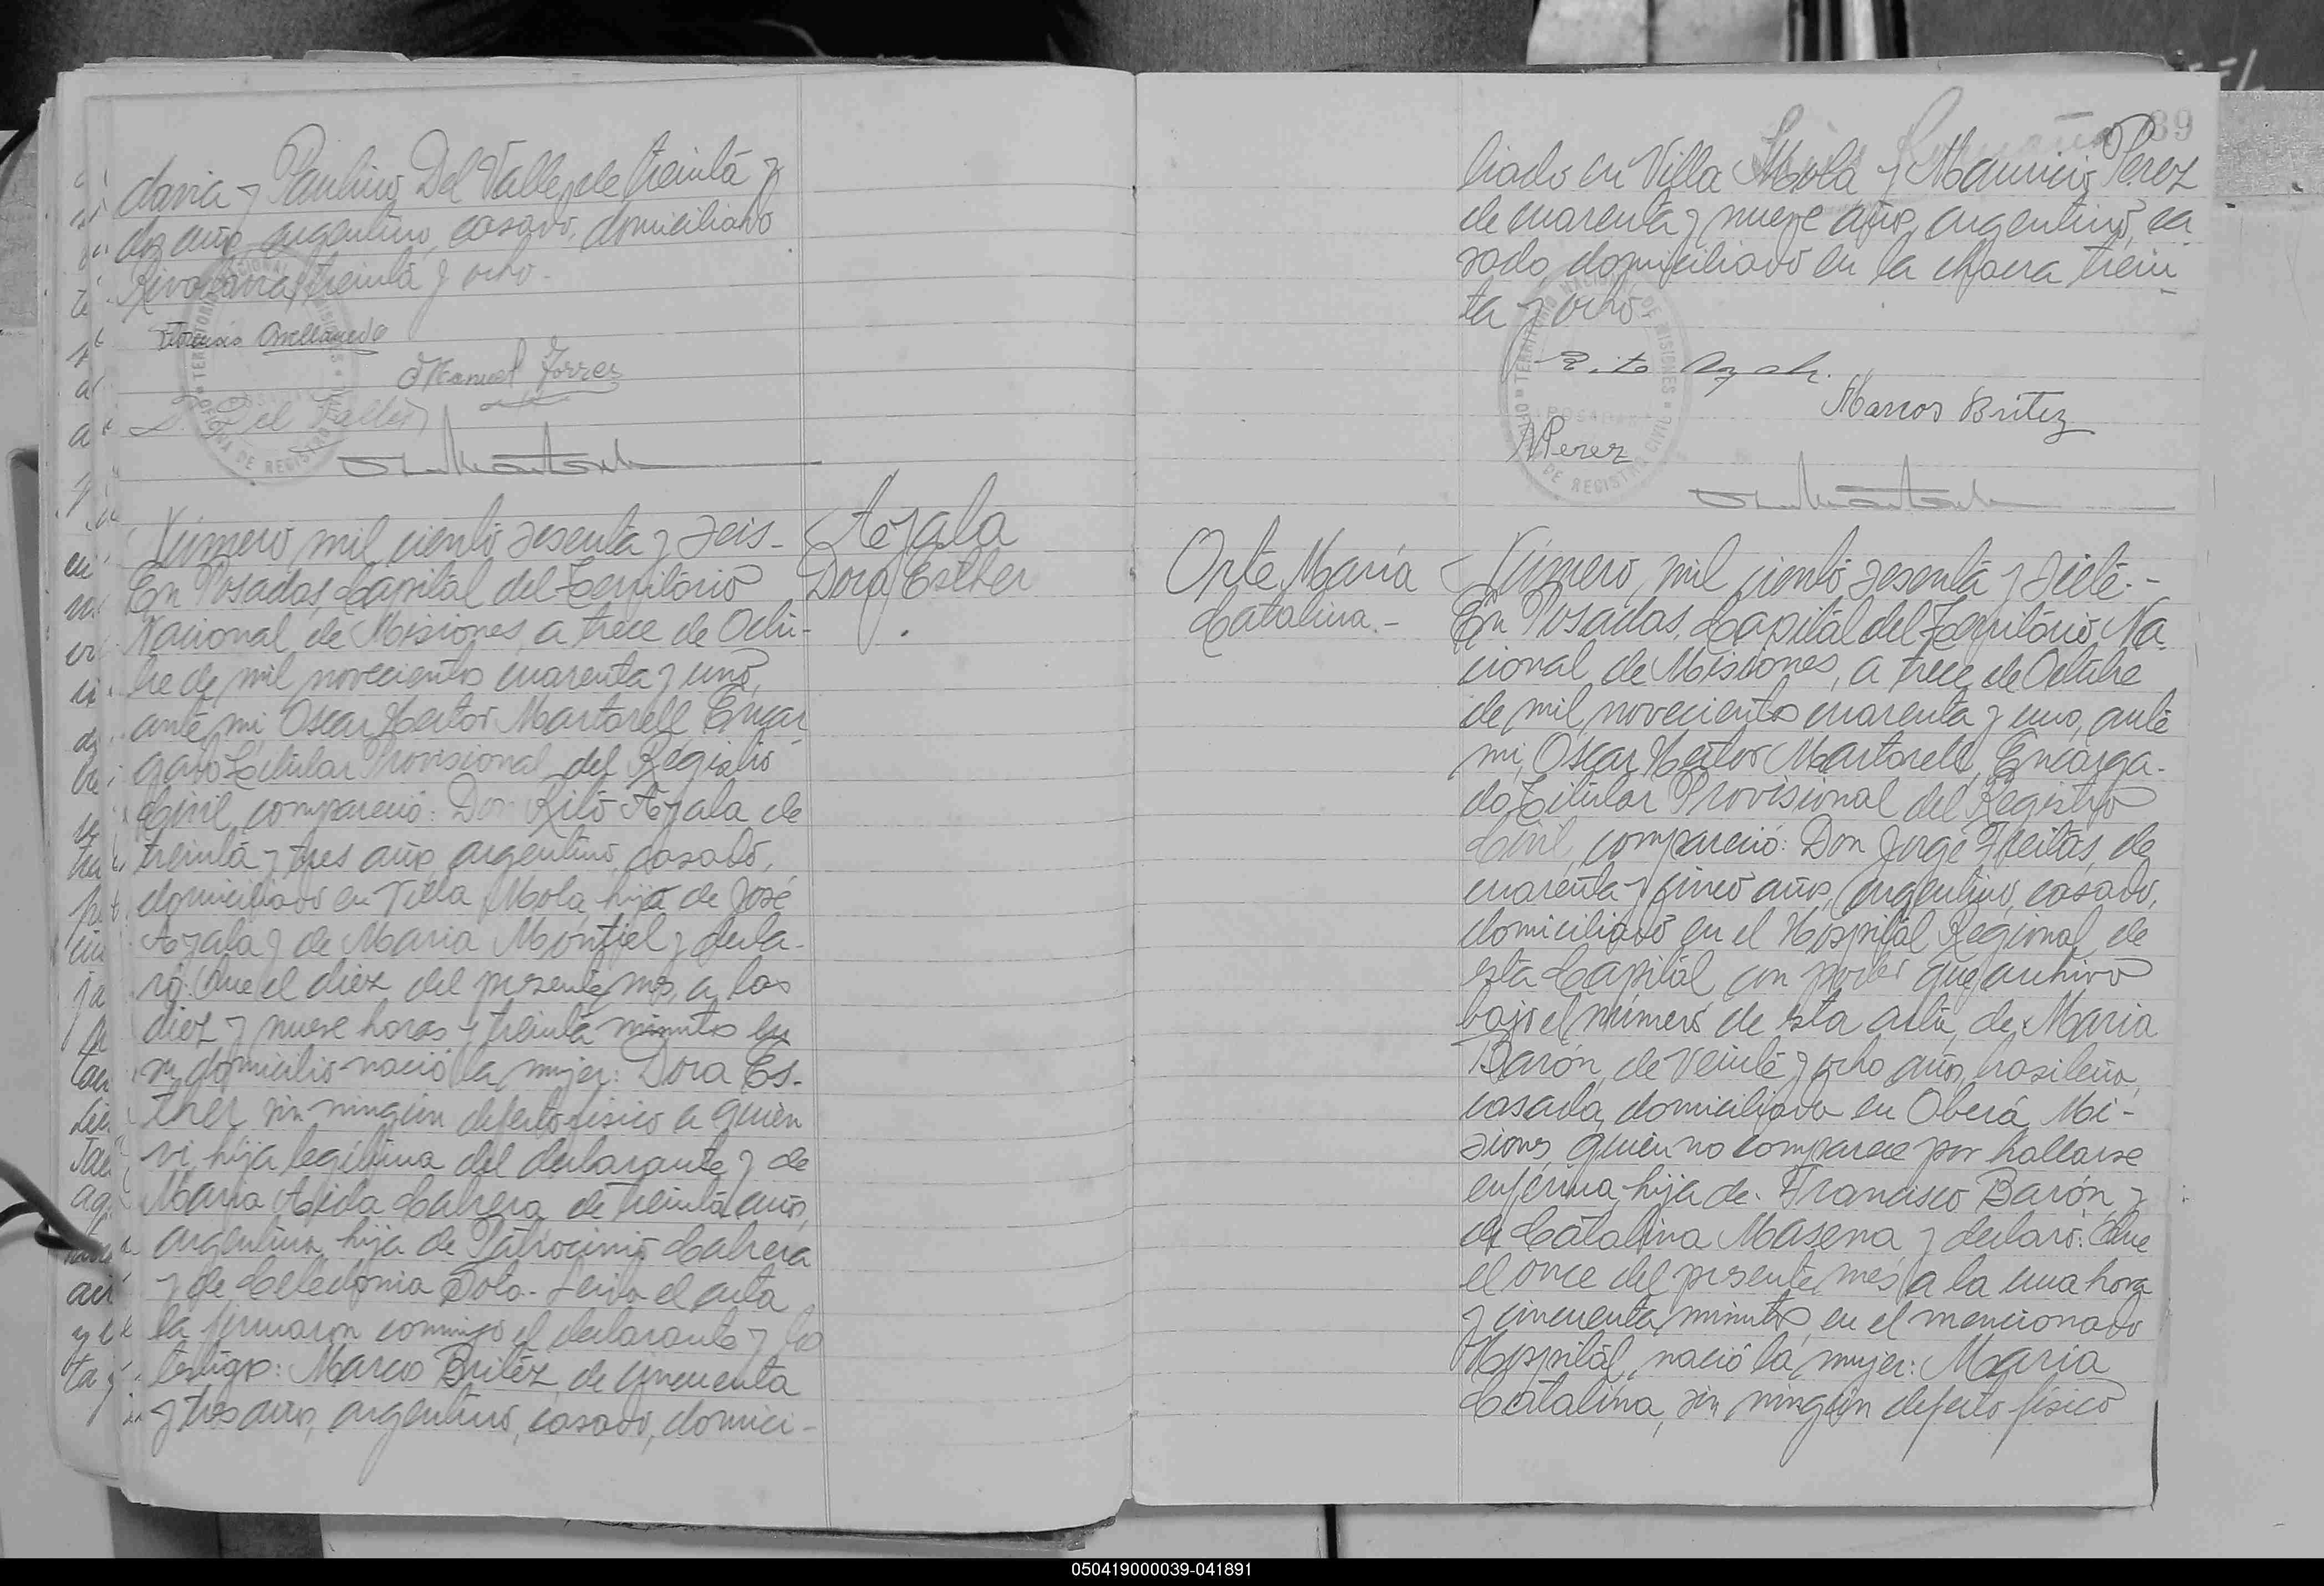 davia y Paulino Del Valle, de treinta y
dos años, argentino, casado, domiciliado
Rivadavia treinta y ocho.-
Avellaneda
Manuel Torres
P. Del Valle
Número mil ciento sesenta y seis-
Ayala
Dora Esther
En Posadas, Capital del Territorio
Nacional de Misiones, a trece de Octu-
bre de mil novecientos cuarenta y uno,
ante mi, Oscar Hector Martorell, Encar-
gado Titular Provisional del Registro
Civil, compareció: Don Rito Ayala, de
treinta y tres años, argentino, casado,
domiciliado en Villa Mola, hijo de José
Ayala y de Maria Montiel y decla-
ró: Que el diez del presente mes, a las
diez y nueve horas y treinta minutos en
su domicilio nació la mujer: Dora Es-
ther sin ningún defecto fisico a quien
vi, hija legítima del declarante y de
Maria Aida Cabrera, de treinta años,
argentina, hija de Patrocinio Cabrera
y de Celedonia Soto.- Leida el acta
la firmaron conmigo el declarante y los
testigos: Marcos Britez, de cincuenta
y tres años, argentino, casado, domici-
89
liado en Villa Mola y Mauricio Perez
de cuarenta y nueve años, argentino, ca
sado, domiciliado en la chacra trein-
ta y ocho
Rito Ayala.
Marcos Britez
MPerez
TERRITORIO NACIONAL DE MISIONES
POSADAS
OFICINA DE REGISTRO CIVIL
Orte María
Catalina.-
Número mil ciento sesenta y siete.-
En Posadas, Capital del Territorio Na
cional de Misiones, a trece de Octubre
de mil novecientos cuarenta y uno, ante
mi, Oscar Hector Martorell, Encarga-
do Titular Provisional del Registro
Civil, compareció: Don Jorge Freitas, de
cuarenta y cinco años, argentino, casado,
domiciliado en el Hospital Regional de
esta Capital con poder que archivo
bajo el número de esta acta, de Maria
Barón, de veinte y ocho años, brasileña,
casada, domiciliada en Oberá, Mi-
siones, quien no comparece por hallarse
enferma, hija de Francisco Barón y
de Catalina Masena y declaró: Que
el once del presente mes a la una hora
y cincuenta minutos, en el mencionado
Hospital, nació la mujer: Maria
Catalina, sin ningún defecto físico
050419000039-041891